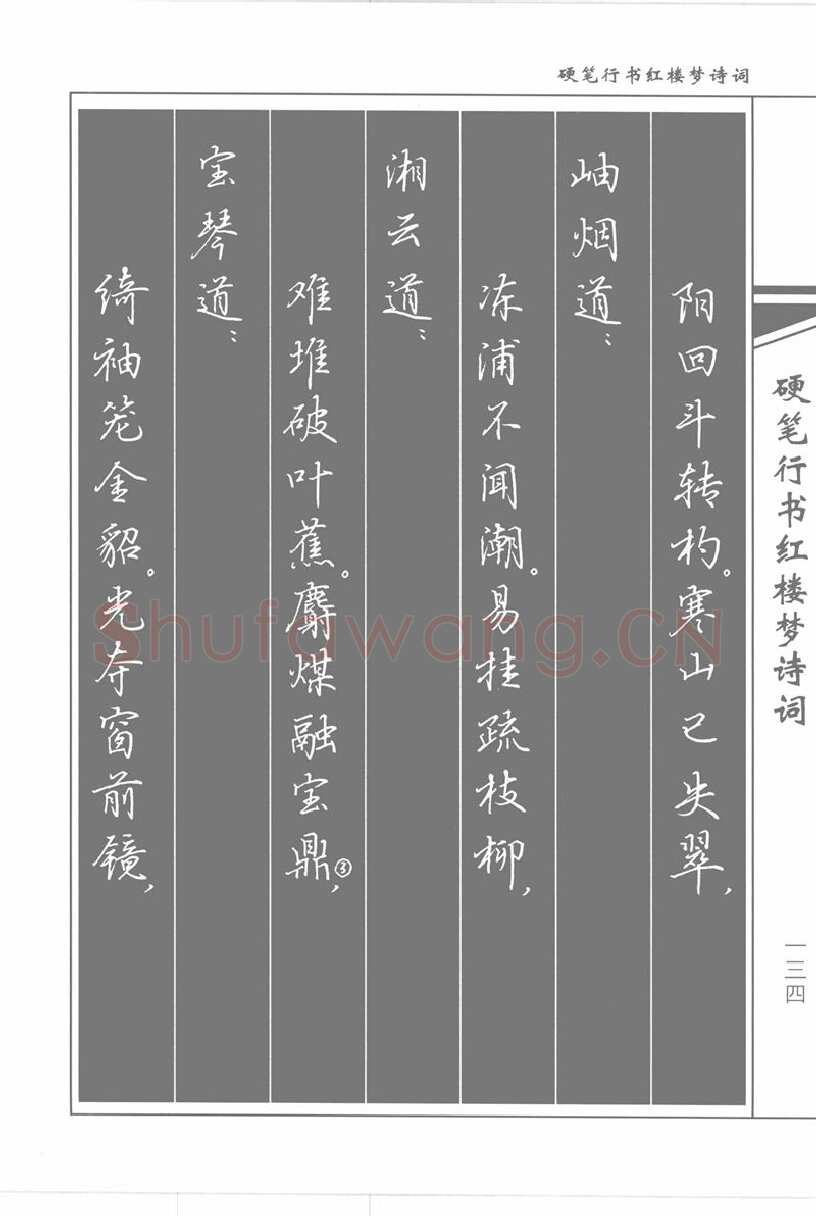 硬笔行书红楼梦诗词
阳回斗转杓。寒山已失翠，
岫烟道：
冻浦不闻潮。易挂疏枝柳，
湘云道：
难堆破叶蕉。麝煤融宝鼎③，
宝琴道：
绮袖笼金貂。光夺窗前镜，
硬笔行书红楼梦诗词
一三四
Shufawang.CN